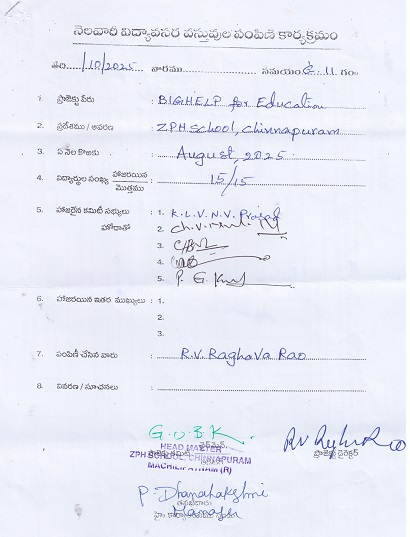 నెలవారీ విద్యావసర వస్తువుల పంపిణీ కార్యక్రమం
తేది..../10/2025 వారము.............. సమయం ఉ. 11 గం.
1. ప్రాజెక్టు పేరు : BIGHELP for Education
2. ప్రదేశము / ఆవరణ : ZPH School, Chinnapuram
3. ఏ నెల కొఱకు : August, 2025
4. విద్యార్థుల సంఖ్య హాజరయిన మొత్తము : 15/15
5. హాజరైన కమిటీ సభ్యులు హోదాతో : 1. K.L.V.N.V. Prasad
2.
3.
4.
5. P. G.
6. హాజరయిన ఇతర ముఖ్యులు : 1.
2.
3.
7. పంపిణీ చేసిన వారు : R.V. Raghava Rao
8. వివరణ / సూచనలు :
G.O.B.K.
HEAD MASTER
ZPH SCHOOL, CHINNAPURAM
MACHILIPATNAM (R)
ప్రాజెక్టు డైరెక్టర్
P. Dhanalakshmi
Manager